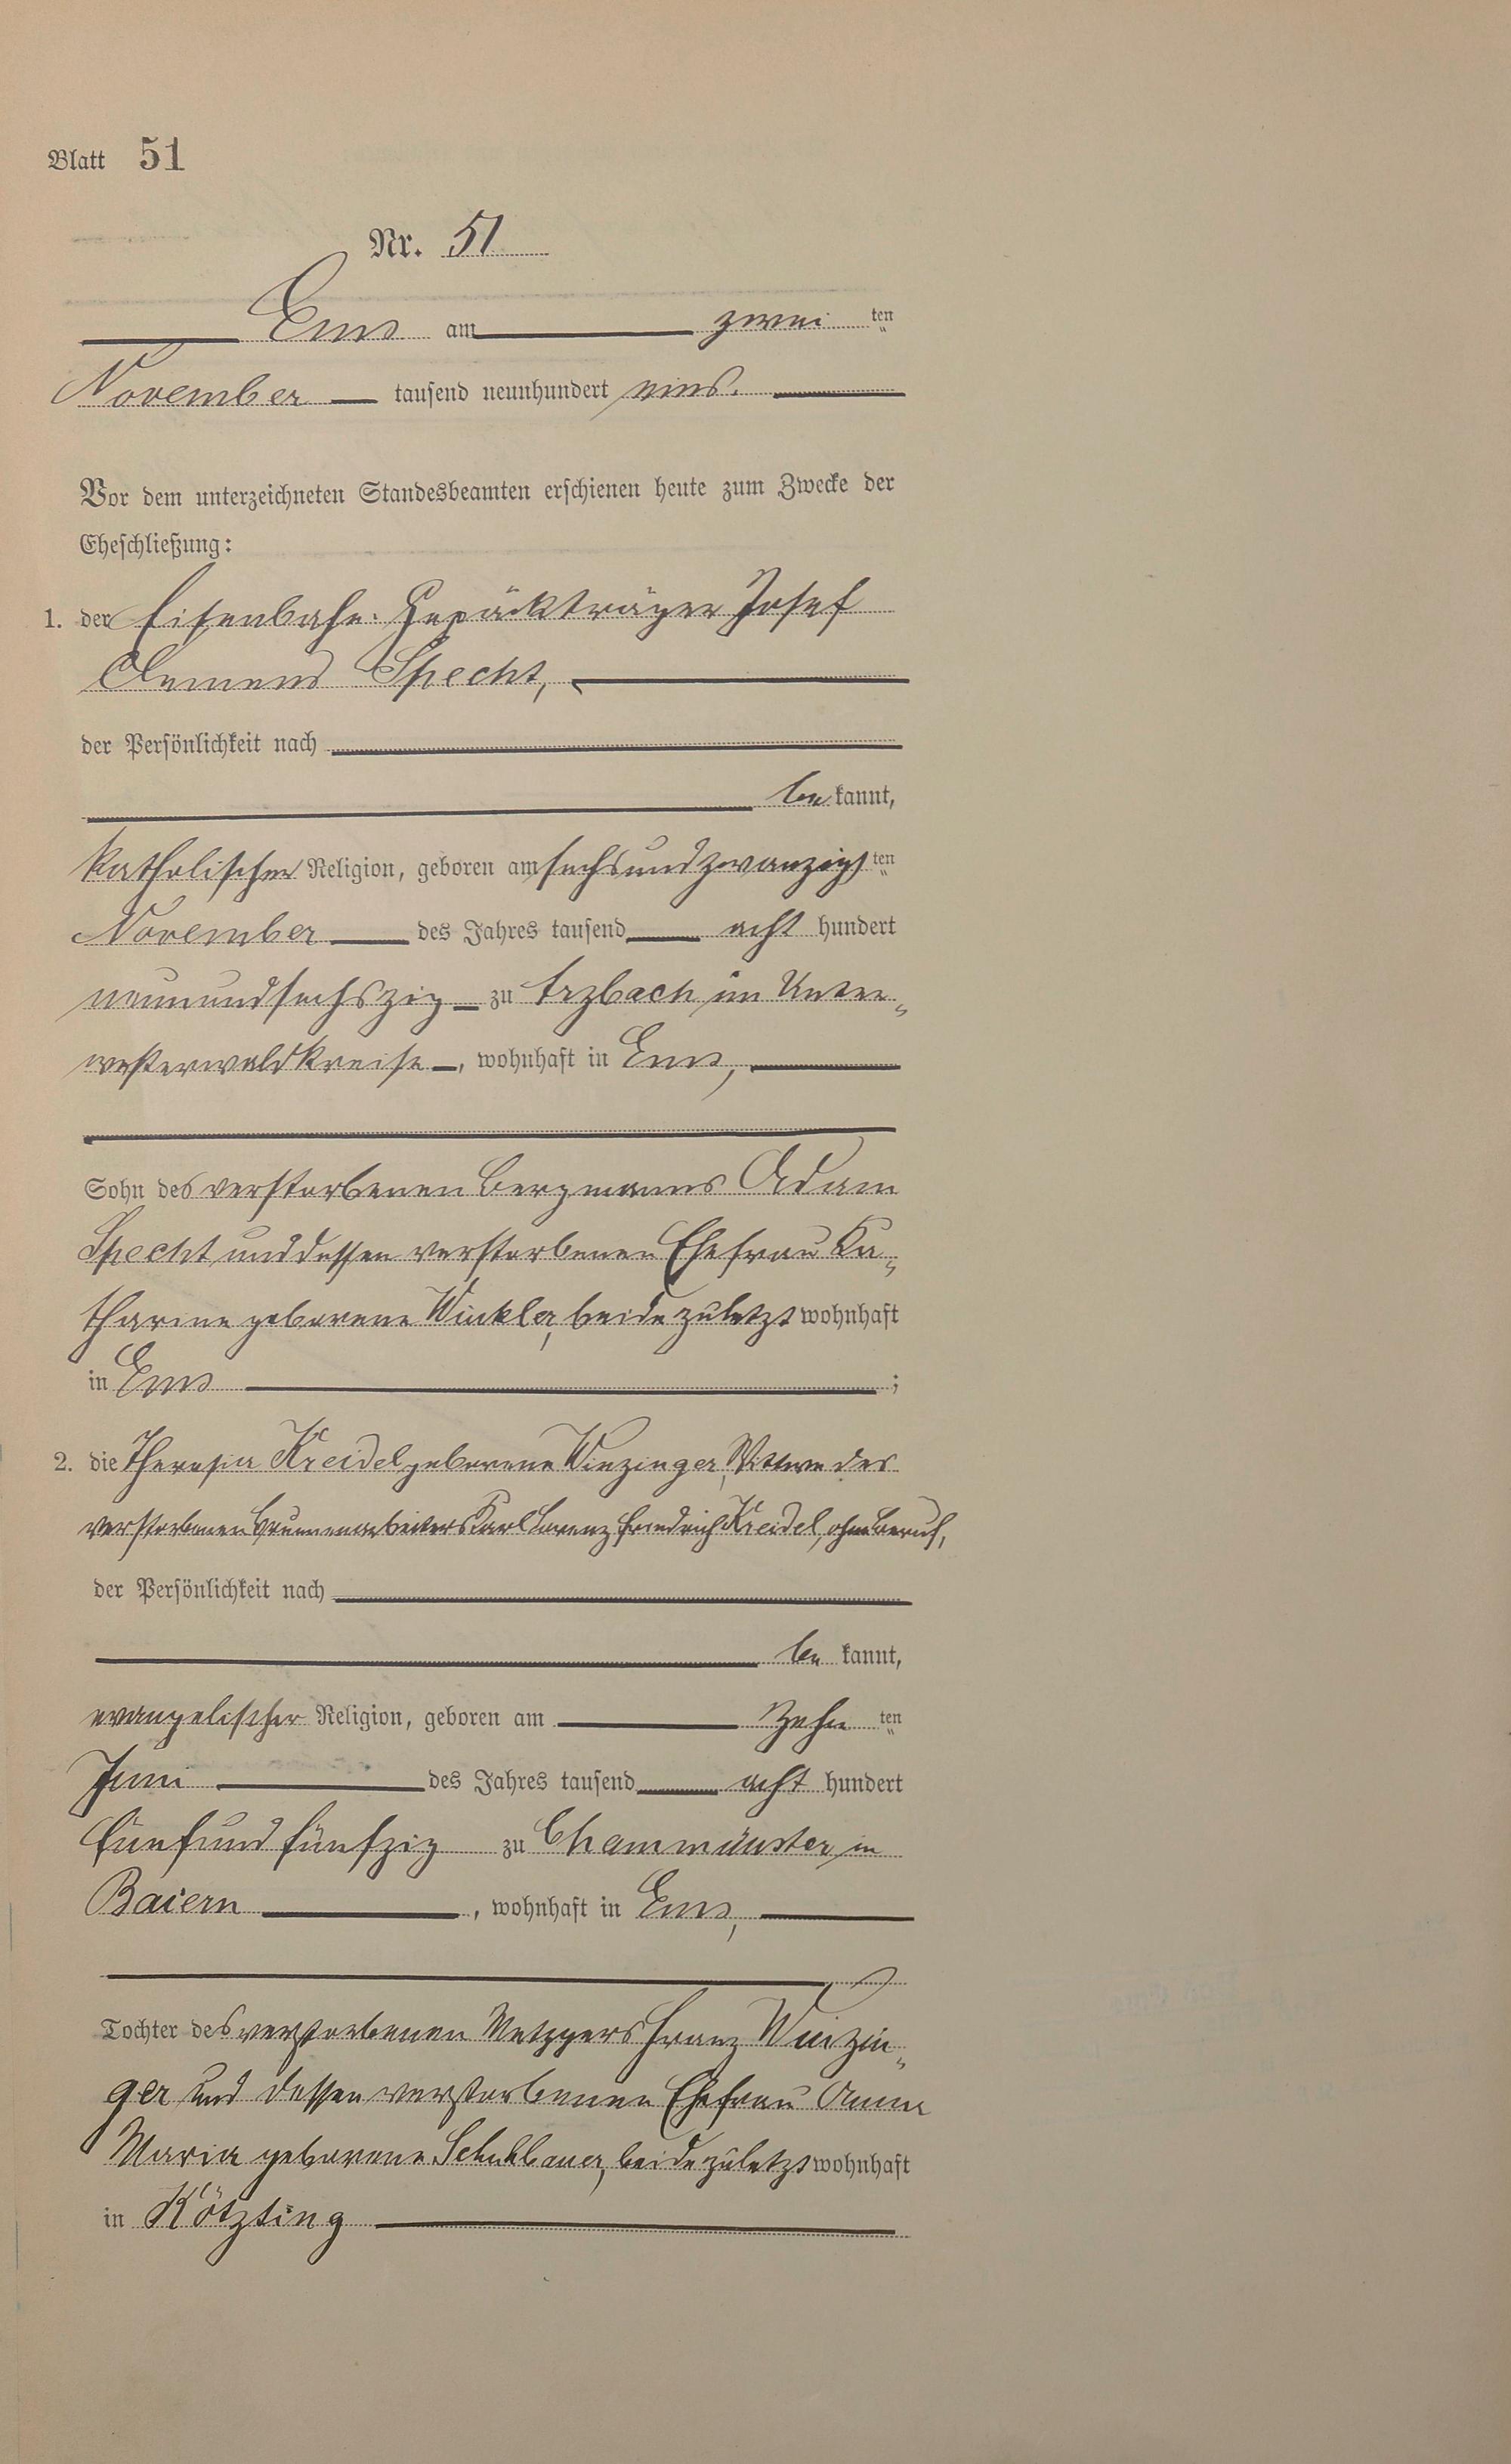 Blatt 51
Nr. 51
Ems am zwei ten
November tausend neunhundert eins.
Vor dem unterzeichneten Standesbeamten erschienen heute zum Zwecke der
Eheschließung:
1. der Eisenbahn-Gepäckträger Josef
Clemens Specht,
der Persönlichkeit nach
be kannt,
katholischer Religion, geboren am sechsundzwanzigs ten
November des Jahres tausend acht hundert
neunundsechszig zu Arzbach im Unter-
westerwaldkreise, wohnhaft in Ems,
Sohn des verstorbenen Bergmanns Adam
Specht und dessen verstorbenen Ehefrau Ka-
tharine geborene Winkler, beide zuletzt wohnhaft
in Ems ;
2. die Theresia Kreidel geborene Winzinger, Wittwe des
verstorbenen Brunnenarbeiters Karl Lorenz Friedrich Kreidel, ohne Beruf,
der Persönlichkeit nach
be kannt,
evangelischer Religion, geboren am zehn ten
Juni des Jahres tausend acht hundert
fünfundfünfzig zu Chammünster, in
Baiern, wohnhaft in Ems,
Tochter des verstorbenen Metzgers Franz Winzin-
ger und dessen verstorbenen Ehefrau Anna
Maria geborene Schuhbauer, beide zuletzt wohnhaft
in Kötzting